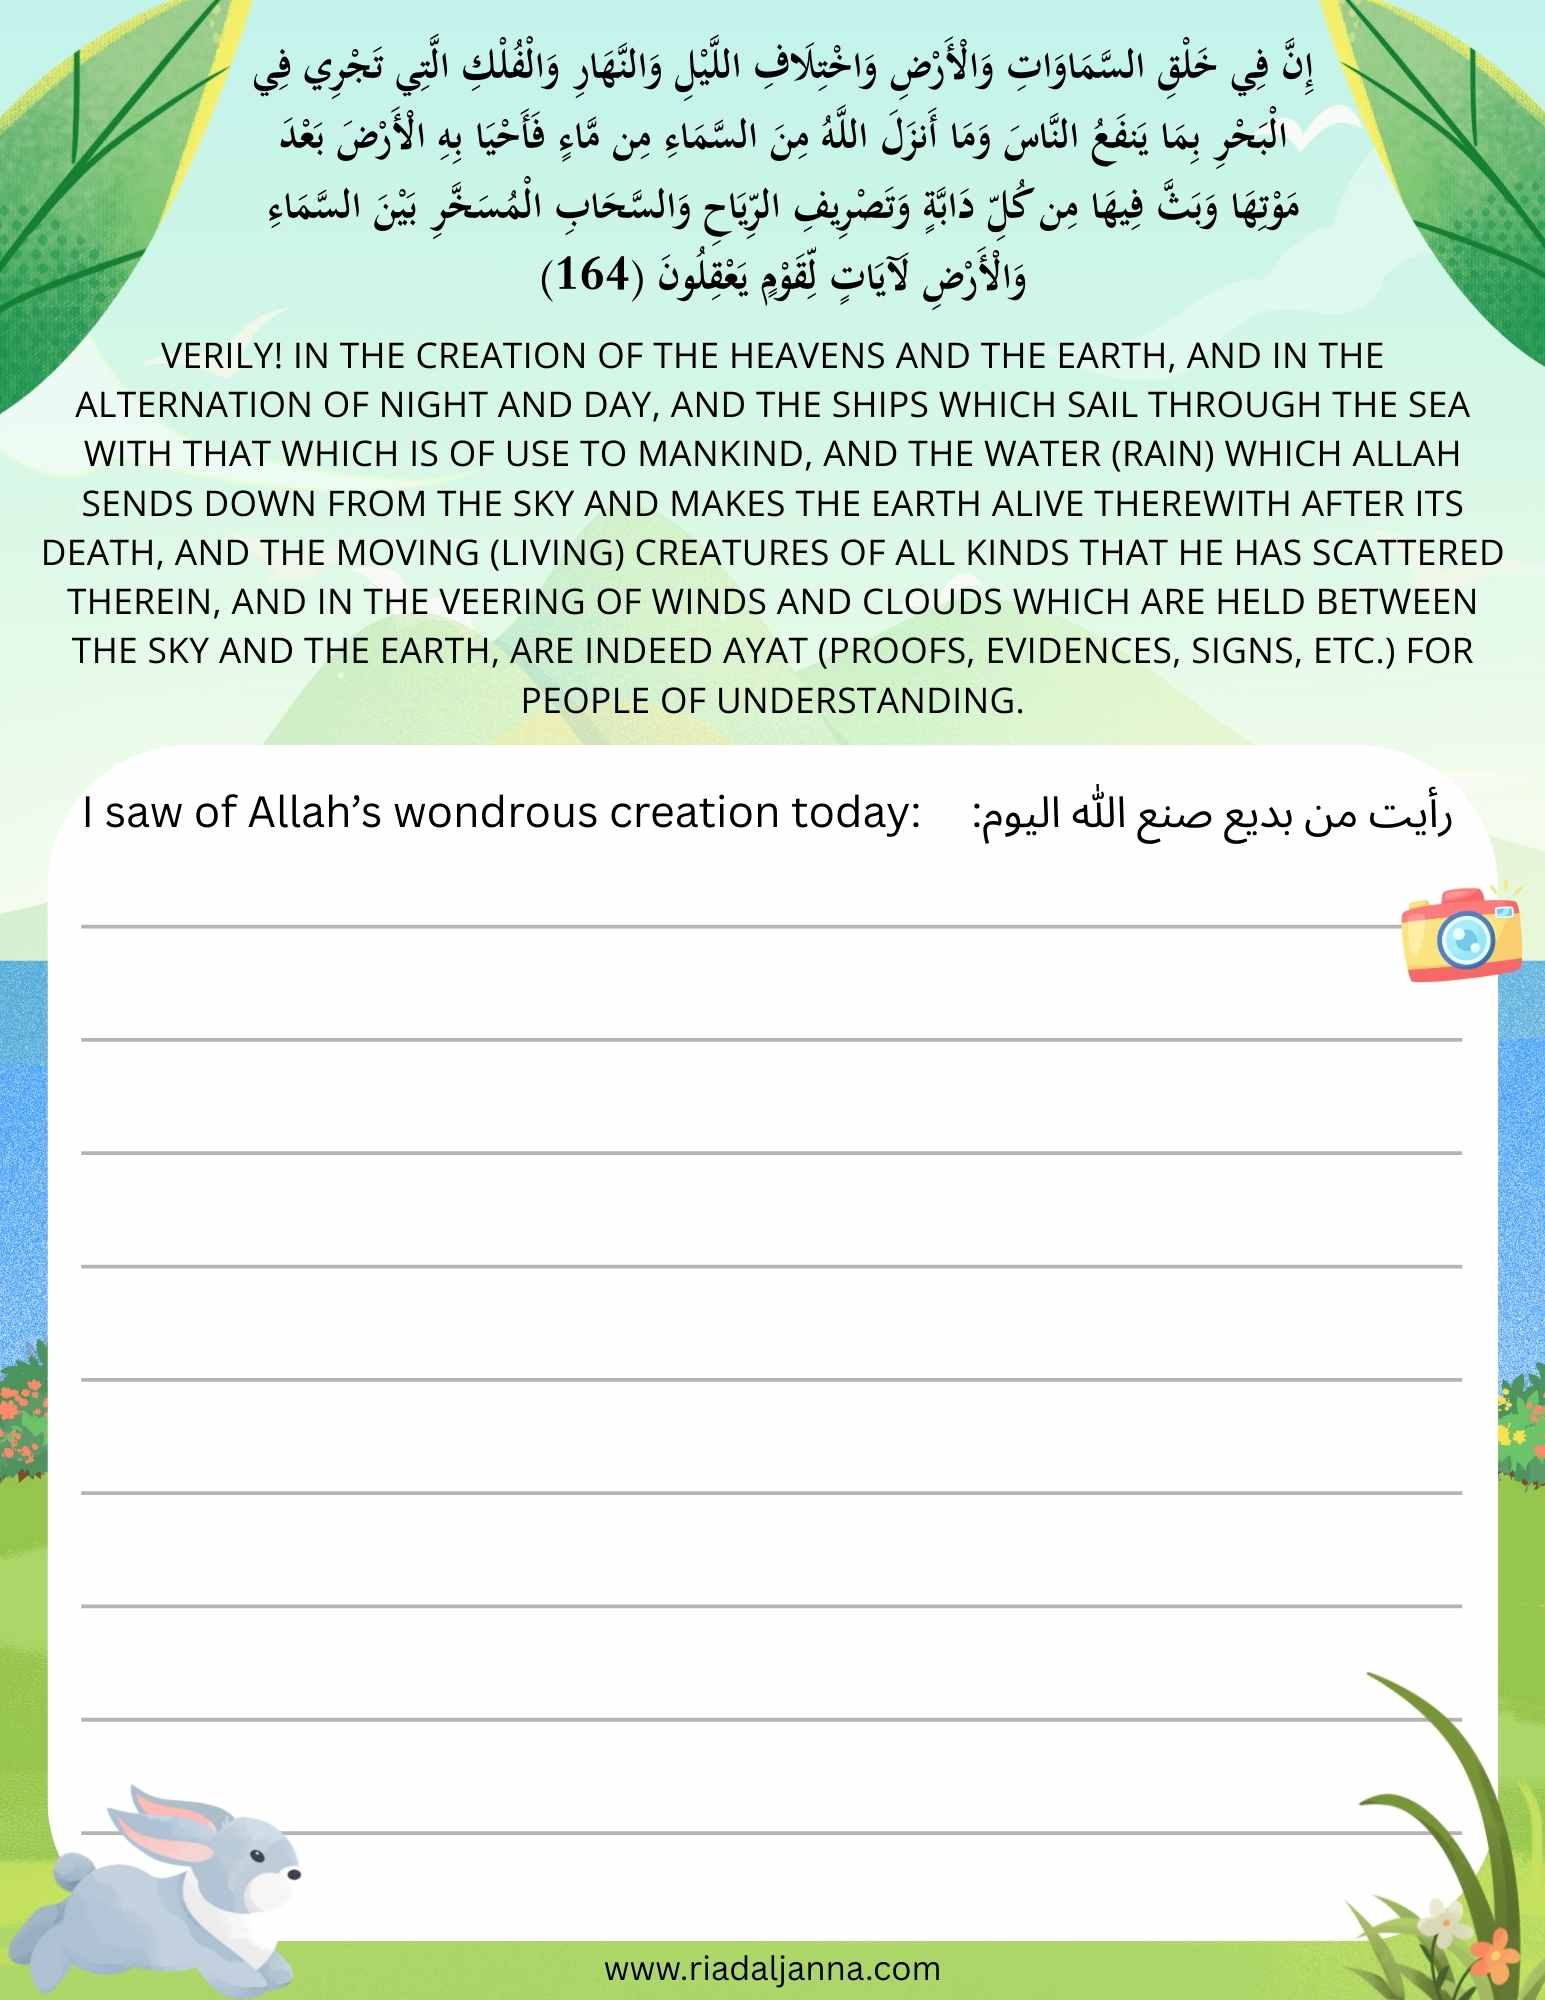 إِنَّ فِي خَلْقِ السَّمَاوَاتِ وَالْأَرْضِ وَاخْتِلَافِ اللَّيْلِ وَالنَّهَارِ وَالْفُلْكِ الَّتِي تَجْرِي فِي
الْبَحْرِ بِمَا يَنفَعُ النَّاسَ وَمَا أَنزَلَ اللَّهُ مِنَ السَّمَاءِ مِن مَّاءٍ فَأَحْيَا بِهِ الْأَرْضَ بَعْدَ
مَوْتِهَا وَبَثَّ فِيهَا مِن كُلِّ دَابَّةٍ وَتَصْرِيفِ الرِّيَاحِ وَالسَّحَابِ الْمُسَخَّرِ بَيْنَ السَّمَاءِ
وَالْأَرْضِ لَآيَاتٍ لِّقَوْمٍ يَعْقِلُونَ (164)
VERILY! IN THE CREATION OF THE HEAVENS AND THE EARTH, AND IN THE
ALTERNATION OF NIGHT AND DAY, AND THE SHIPS WHICH SAIL THROUGH THE SEA
WITH THAT WHICH IS OF USE TO MANKIND, AND THE WATER (RAIN) WHICH ALLAH
SENDS DOWN FROM THE SKY AND MAKES THE EARTH ALIVE THEREWITH AFTER ITS
DEATH, AND THE MOVING (LIVING) CREATURES OF ALL KINDS THAT HE HAS SCATTERED
THEREIN, AND IN THE VEERING OF WINDS AND CLOUDS WHICH ARE HELD BETWEEN
THE SKY AND THE EARTH, ARE INDEED AYAT (PROOFS, EVIDENCES, SIGNS, ETC.) FOR
PEOPLE OF UNDERSTANDING.
I saw of Allah’s wondrous creation today: رأيت من بديع صنع الله اليوم:
www.riadaljanna.com